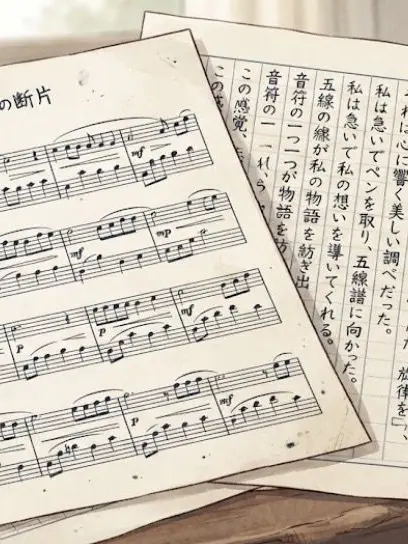 の断片
mf
mf p
p p mf
p mf
旋律を」、
れは心に響く美しい調べだった。
私は急いでペンを取り、五線譜に向かった。
私は急いで私の想いを導いてくれる。
五線の線が私の物語を紡ぎ出
音符の一つ一つが物語を紡
音符の一
この感覚、
この